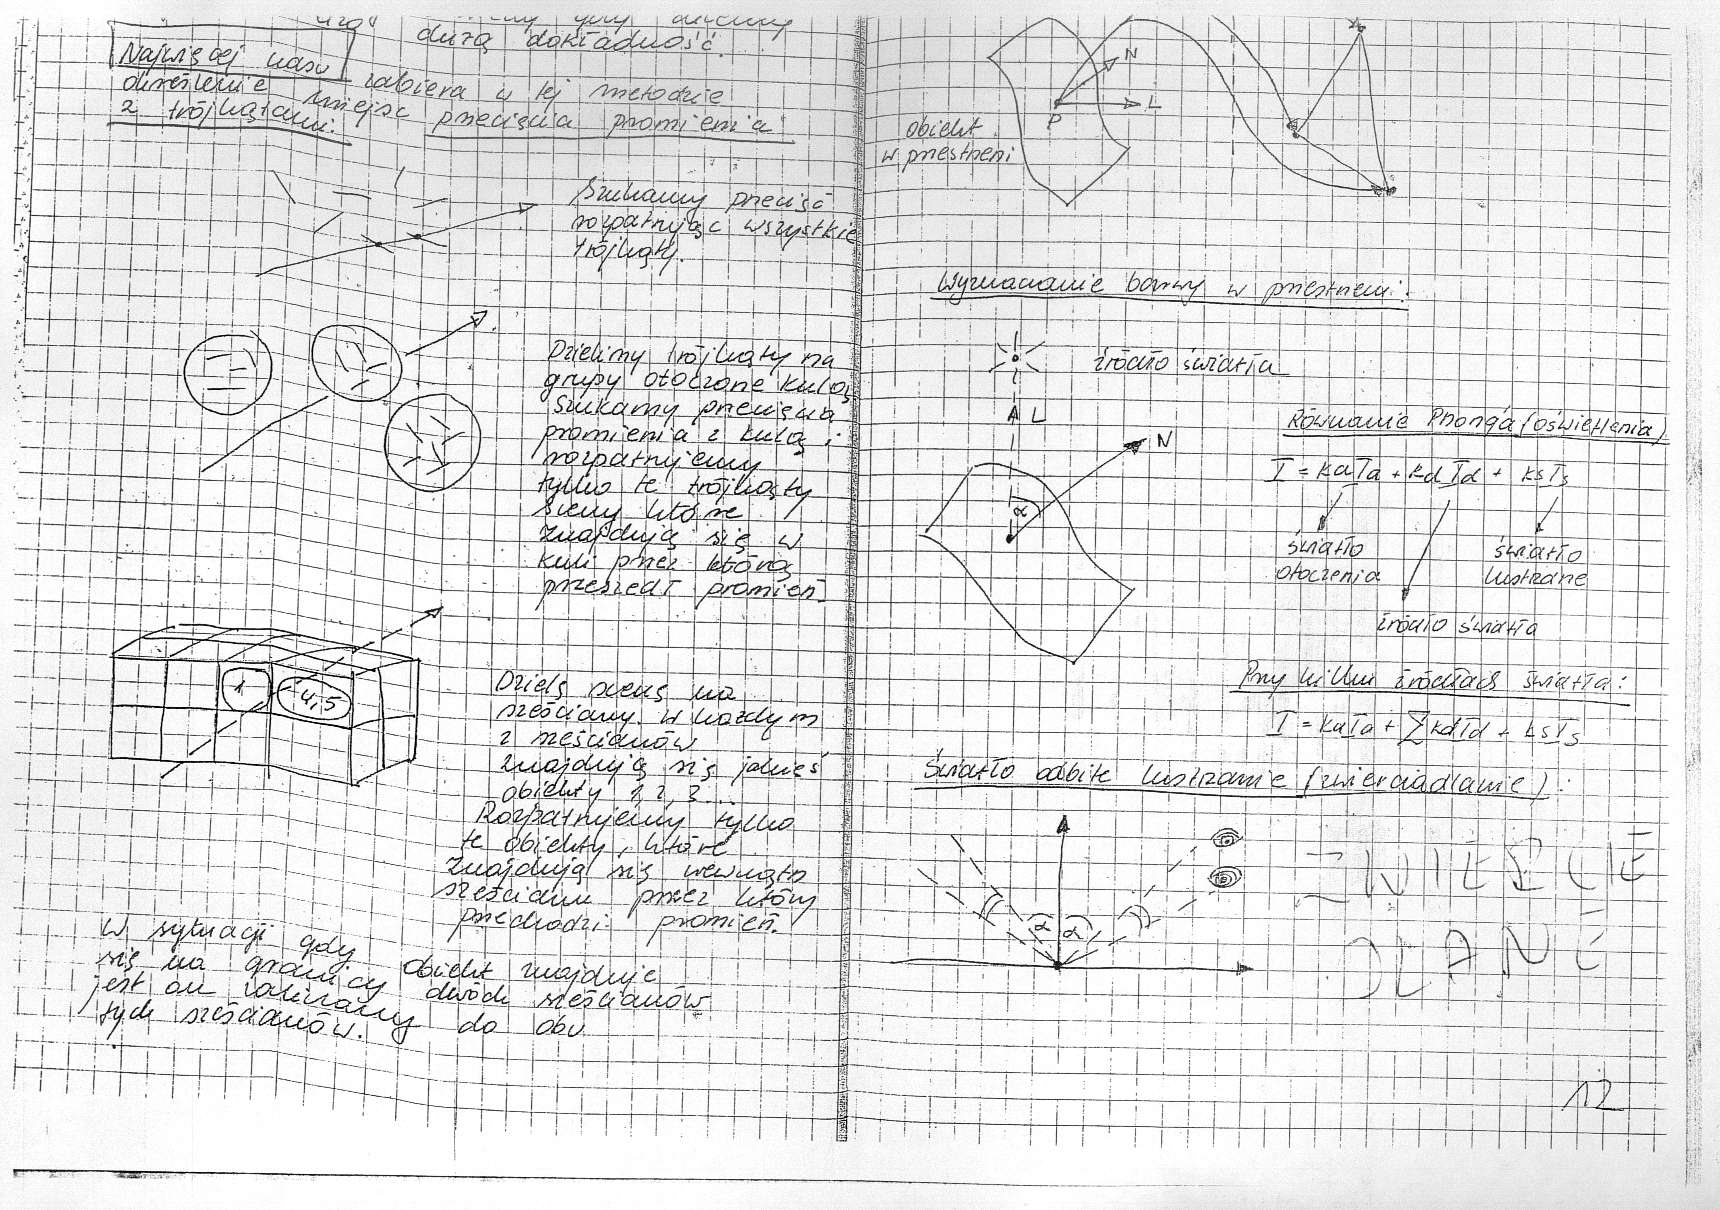 dużą dokładność.
Najwięcej czasu zabiera w tej metodzie
określenie miejsc przecięcia promienia
z trójkątami:
Szukamy przecięć
rozpatrując wszystkie
trójkąty.
Dzielimy trójkąty na
grupy otoczone kulą
szukamy przecięcia
promienia z kulą i
rozpatrujemy
tylko te trójkąty
sceny które
znajdują się w
kuli przez którą
przeszedł promień
1
4,5
Dzielę scenę na
sześciany. W każdym
z sześcianów
znajdują się jakieś
obiekty 1, 2, 3...
Rozpatrujemy tylko
te obiekty, które
znajdują się wewnątrz
sześcianu przez który
przechodzi promień.
W sytuacji gdy obiekt znajduje
się na granicy dwóch sześcianów
jest on zaliczany do obu
tych sześcianów.
N
L
P
obiekt
w przestrzeni
Wyznaczanie barwy w przestrzeni:
źródło światła
L
N
α
Równanie Phonga (oświetlenia)
I = kaIa + kdId + ksIs
światło
otoczenia
światło
lustrzane
źródło światła
Przy kilku źródłach światła:
I = kaIa + ∑kdId + ksIs
Światło odbite lustrzanie (zwierciadlanie):
α α
ZWIERCIE
DLANE
12